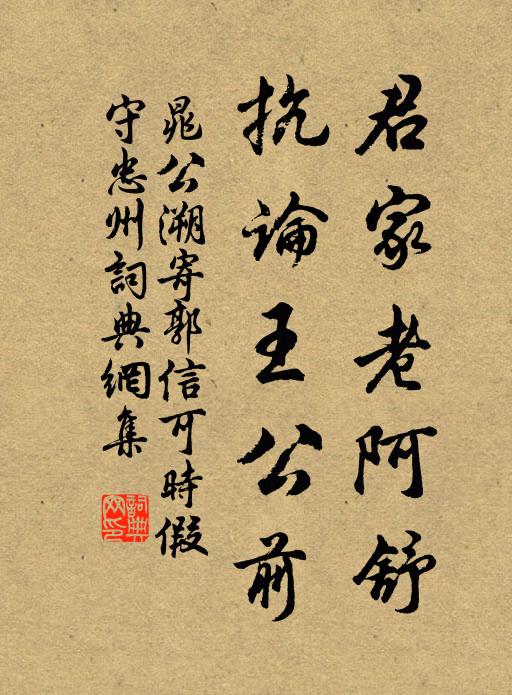 君家老阿舒
抗論王公前
晁公溯寄郭信可時假
守忠州詞典網集
詞典网印